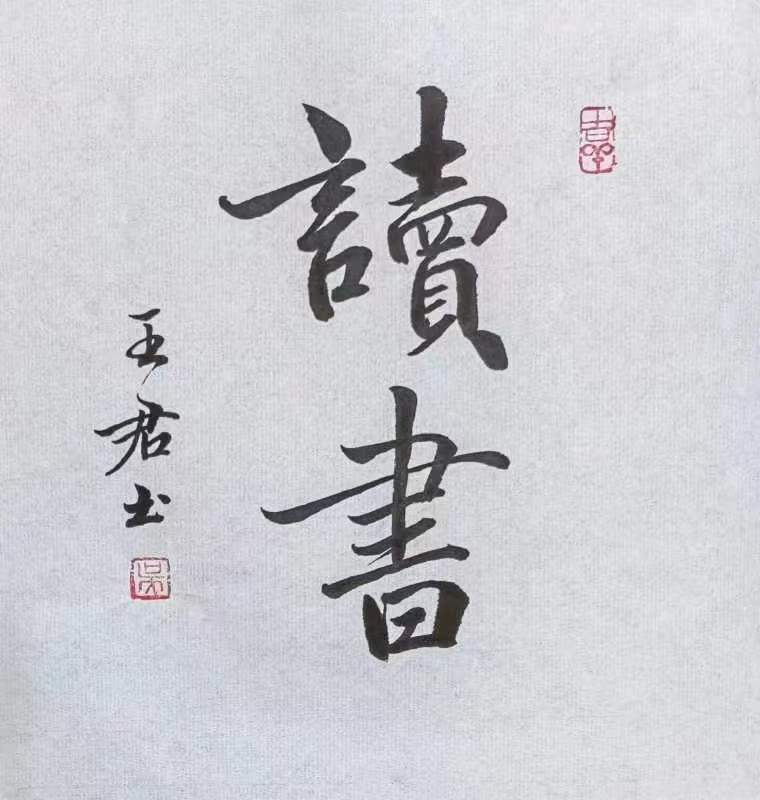 讀書
王君